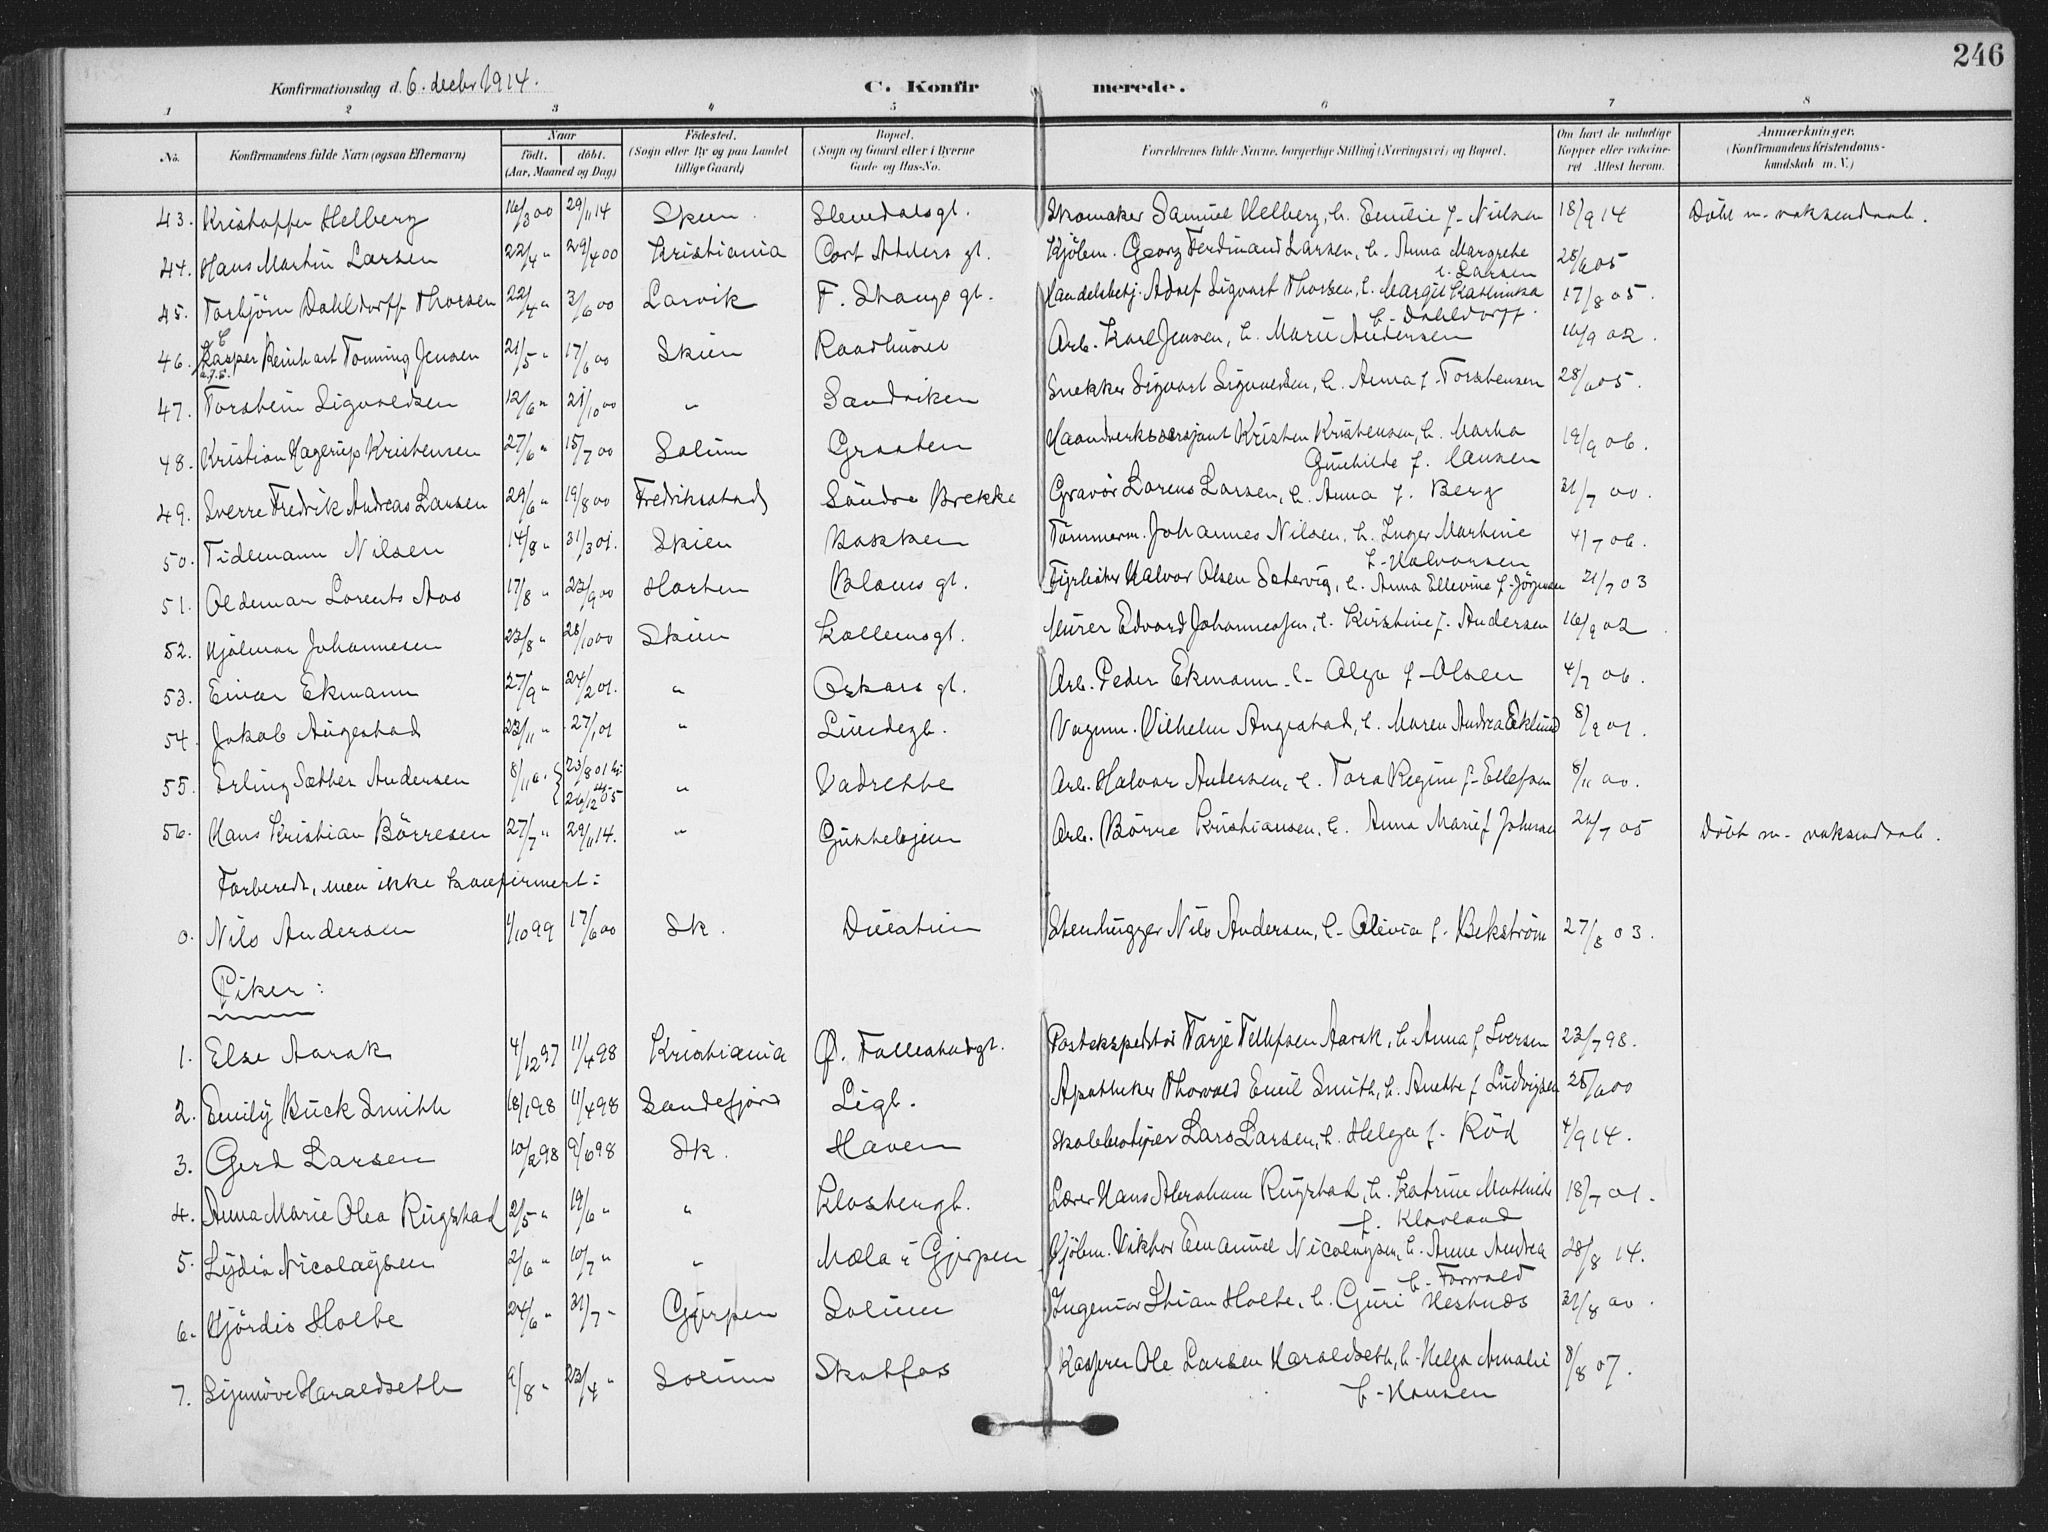 246
Konfirmationsdag d. 6. decbr 1914.
C. Konfirmerede.
1 2 3 4 5 6 7 8
No.
Konfirmandens fulde Navn (ogsaa Efternavn)
Naar
født. døbt.
(Aar, Maaned og Dag)
Fødested.
(Sogn eller By og paa Landet
tillige Gaard)
Bopæl.
(Sogn og Gaard eller i Byerne
Gade og Hus-No.
Forældrenes fulde Navne, borgerlige Stilling (Næringsvei) og Bopæl.
Om havt de naturlige
Kopper eller vakcine-
ret Attest herom.
Anmærkninger.
(Konfirmandens Kristendoms-
kundskab m. V.)
43. Kristoffer Helberg 16/3 00 29/11 14 Skien Slemdalsgt. Skomaker Samuel Helberg, h. Emilie f. Nielsen 18/9 14 Døbt v. voksendaab.
44. Hans Martin Larsen 22/4 " 29/4 00 Kristiania Cort Adlers gt. Kjøbm. Georg Ferdinand Larsen, h. Anna Margrethe
f. Larsen 28/6 05
45. Torbjørn Dahldorff Thorsen 22/4 " 3/6 00 Larvik F. Stangs gt. Handelsbetj. Adolf Sigvart Thorsen, h. Margit Kathinka
f. Dahldorff. 17/8 05.
46. Kasper Reinhart Tonning Jensen 21/5 " 17/6 00 Skien Raadhuset Arb. Karl Jensen, h. Marie Andersen 16/9 02.
47. Torstein Sigvaldsen 12/6 " 21/10 00 " Sandviken Snekker Sigvart Sigvaldsen, h. Anna f. Torstensen 28/6 05.
48. Kristian Hagerup Kristensen 27/6 " 15/7 00 Solum Graaten Haandverkssersjant Kristen Kristensen, h. Marta
Gunhilde f. Hansen 19/9 06.
49. Sverre Fredrik Andreas Larsen 29/6 " 19/8 00 Fredriksstad Søndre Brekke Gravør Lorens Larsen, h. Anna f. Berg 31/7 00.
50. Tidemann Nilsen 14/8 " 31/3 01. Skien Bakken Tømmerm. Johannes Nilsen, h. Inger Martine
f. Halvorsen 4/7 06.
51. Aldemar Lorents Aas 17/8 " 23/9 00 Horten Blaus gt. Fyrbøter Halvor Olsen Setervig, h. Anna Ellevine f. Jörgensen 21/7 03
52. Hjalmar Johannesen 23/8 " 28/10 00 Skien Kallemsgt. Murer Edvard Johannessen, h. Kristine f. Andersen 16/9 02.
53. Einar Ekmann 27/9 " 24/2 01. " Oskars gt. Arb. Peder Ekmann, h. Olga f. Olsen 4/7 06.
54. Jakob Augestad 23/11 " 27/1 01 " Lundegt. Vognm. Vilhelm Augestad, h. Maren Andrea Eklund 8/9 01.
55. Erling Sæther Andersen 8/11 00. 23/8 01 hj. 26/12 05 " Vadrette Arb. Halvor Andersen, h. Tora Regine f. Ellefsen 8/11 00.
56. Hans Kristian Börresen 27/7 " 29/11 14. " Arb. Börre Kristiansen, h. Anna Marie f. 26/7 05 Döbt v. voksendaab.
Forberedt, men ikke konfirmert:
0. Nils Andersen 1/10 99 17/6 00 Sk. Duestien Stenhugger Nils Andersen, h. Olivia f. Bekström 27/8 03.
Piker:
1. Else Aarak 4/12 97 11/4 98 Kristiania Ø. Follestadgt. Postekspeditör Tarje Tellefsen Aarak, h. Anna f. Iversen 23/7 98.
2. Emily Buck Smith 18/1 98 11/4 98 Sandefjord Ligt. Apotheker Thorvald Emil Smith, h. Anette f. Ludvigsen 25/6 00
3. Gerd Larsen 10/2 98 9/6 98 Sk. Haven Skolebestyrer Lars Larsen, h. Helga f. Röd 4/9 14.
4. Anna Marie Olea Rugstad 2/5 " 19/6 " " Klostergt. Lærer Hans Abraham Rugstad, h. Katrine Mathilde
f. Klovland 18/7 01.
5. Lydia Nicolaysen 2/6 " 10/7 " " Mæla i Gjerpen Kjøbm. Viktor Emanuel Nicolaysen, h. Anne Andrea
f. Forvald 28/8 14.
6. Hjördis Holte 24/6 " 31/7 " Gjerpen Solum Ingeniör Stian Holte, h. Guri Hestnæs 31/8 00.
7. Synnöve Haraldseth 9/8 " 23/4 " Solum Skotfos Kasserer Ole Larsen Haraldseth, h. Helga Amalie
f. Hansen 8/8 07.